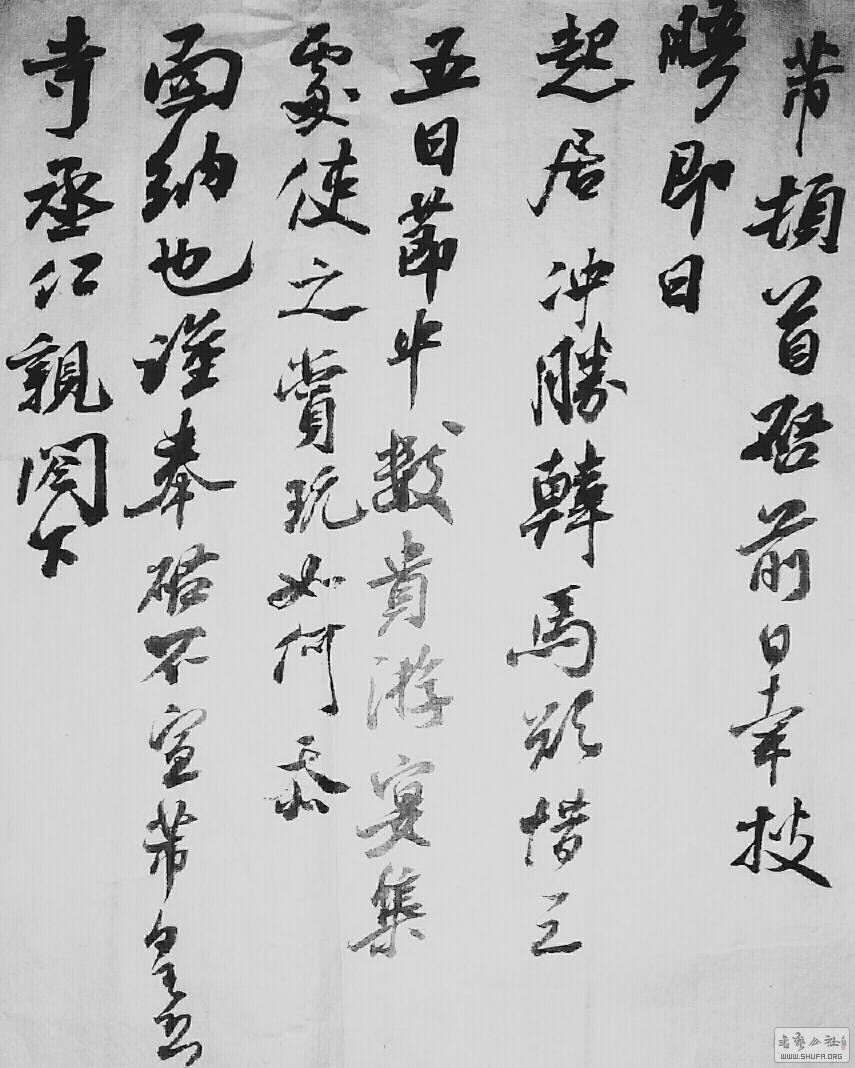 芾頓首啓前日幸披
晤即日
起居冲勝韓馬欲借三
五日節中數貴游宴集
處使之賞玩如何忝
面納也謹奉啓不宣芾皇恐
寺丞仁親閣下
WWW.SHUFA.ORG